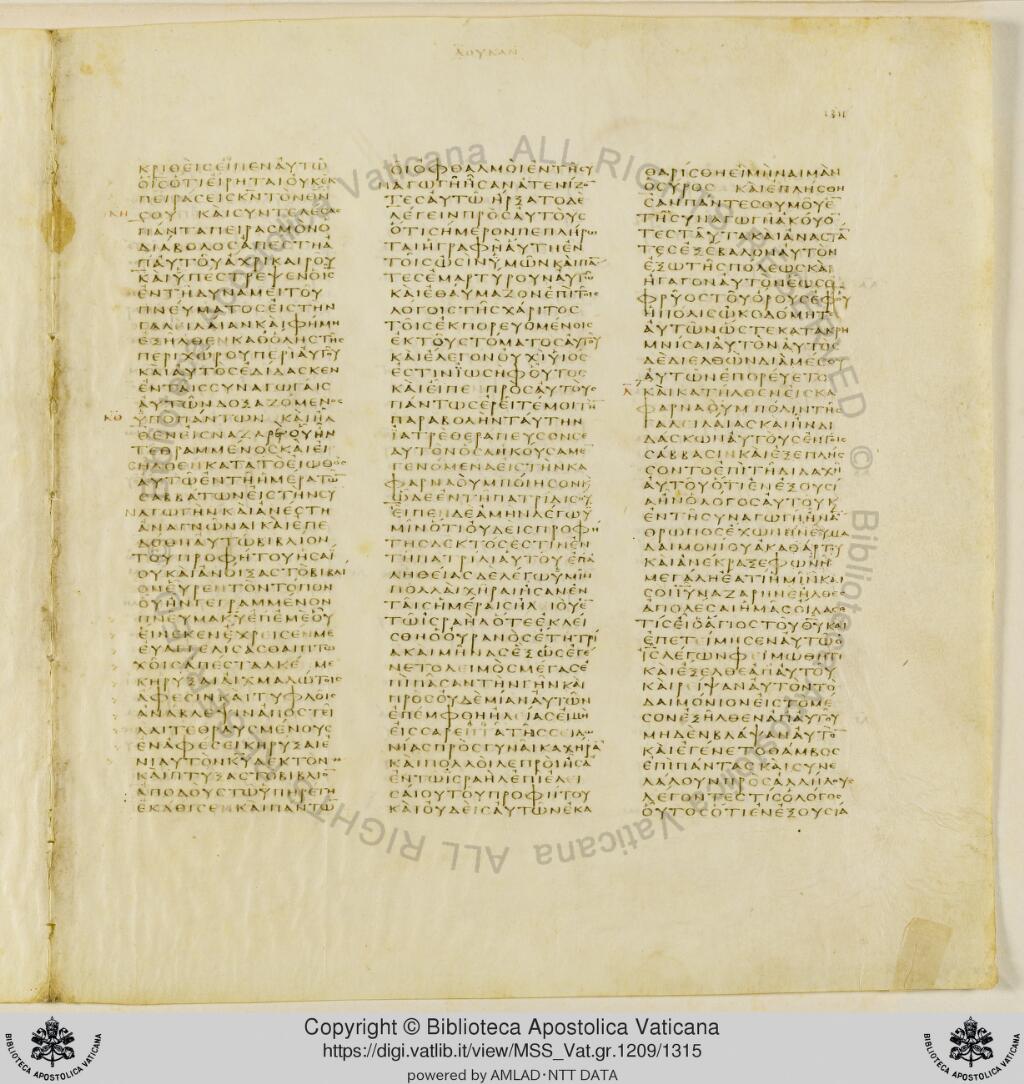 ΛΟΥΚΑΝ
1311
ΚΡΙΘΕΙϹΕΙΠΕΝΑΥΤΩ
ΟΙϹΟΤΙΕΙΡΗΤΑΙΟΥΚΕΚ
ΠΕΙΡΑϹΕΙϹΚΝΤΟΝΘΝ
ϹΟΥ ΚΑΙϹΥΝΤΕΛΕϹΑϹ
ΠΑΝΤΑΠΕΙΡΑϹΜΟΝΟ
ΔΙΑΒΟΛΟϹΑΠΕϹΤΗΑ
ΠΑΥΤΟΥΑΧΡΙΚΑΙΡΟΥ
ΚΑΙΥΠΕϹΤΡΕΨΕΝΟΙϹ
ΕΝΤΗΔΥΝΑΜΕΙΤΟΥ
ΠΝΕΥΜΑΤΟϹΕΙϹΤΗΝ
ΓΑΛΕΙΛΑΙΑΝΚΑΙΦΗΜΗ
ΕΞΗΛΘΕΝΚΑΘΟΛΗϹΤΗϹ
ΠΕΡΙΧΩΡΟΥΠΕΡΙΑΥΤΟΥ
ΚΑΙΑΥΤΟϹΕΔΙΔΑϹΚΕΝ
ΕΝΤΑΙϹϹΥΝΑΓΩΓΑΙϹ
ΑΥΤΩΝΔΟΞΑΖΟΜΕΝΟϹ
ΥΠΟΠΑΝΤΩΝ ΚΑΙΗΛ
ΘΕΝΕΙϹΝΑΖΑΡΕΘΟΥΗΝ
ΤΕΘΡΑΜΜΕΝΟϹΚΑΙΕΙ
ϹΗΛΘΕΝΚΑΤΑΤΟΕΙΩΘΟϹ
ΑΥΤΩΕΝΤΗΗΜΕΡΑΤΩ
ϹΑΒΒΑΤΩΝΕΙϹΤΗΝϹΥ
ΝΑΓΩΓΗΝΚΑΙΑΝΕϹΤΗ
ΑΝΑΓΝΩΝΑΙΚΑΙΕΠΕ
ΔΟΘΗΑΥΤΩΒΙΒΛΙΟΝ
ΤΟΥΠΡΟΦΗΤΟΥΗϹΑΙ
ΟΥΚΑΙΑΝΟΙΞΑϹΤΟΒΙΒΛΙ
ΟΝΕΥΡΕΝΤΟΝΤΟΠΟΝ
ΟΥΗΝΓΕΓΡΑΜΜΕΝΟΝ
ΠΝΕΥΜΑΚΥΕΠΕΜΕΟΥ
ΕΙΝΕΚΕΝΕΧΡΕΙϹΕΝΜΕ
ΕΥΑΓΓΕΛΙϹΑϹΘΑΙΠΤΩ
ΧΟΙϹΑΠΕϹΤΑΛΚΕ ΜΕ
ΚΗΡΥΞΑΙΑΙΧΜΑΛΩΤΟΙϹ
ΑΦΕϹΙΝΚΑΙΤΥΦΛΟΙϹ
ΑΝΑΒΛΕΨΙΝΑΠΟϹΤΕΙ
ΛΑΙΤΕΘΡΑΥϹΜΕΝΟΥϹ
ΕΝΑΦΕϹΕΙΚΗΡΥΞΑΙΕ
ΝΙΑΥΤΟΝΚΥΔΕΚΤΟΝ
ΚΑΙΠΤΥΞΑϹΤΟΒΙΒΛΙΟ
ΑΠΟΔΟΥϹΤΩΥΠΗΡΕΤΗ
ΕΚΑΘΙϹΕΝΚΑΙΠΑΝΤΩ
ΟΙΟΦΘΑΛΜΟΙΕΝΤΗϹΥ
ΝΑΓΩΓΗΗϹΑΝΑΤΕΝΙΖΟ
ΤΕϹΑΥΤΩ ΗΡΞΑΤΟΔΕ
ΛΕΓΕΙΝΠΡΟϹΑΥΤΟΥϹ
ΟΤΙϹΗΜΕΡΟΝΠΕΠΛΗΡΩ
ΤΑΙΗΓΡΑΦΗΑΥΤΗΕΝ
ΤΟΙϹΩϹΙΝΥΜΩΝΚΑΙΠΑ
ΤΕϹΕΜΑΡΤΥΡΟΥΝΑΥΤΩ
ΚΑΙΕΘΑΥΜΑΖΟΝΕΠΙΤΟΙϹ
ΛΟΓΟΙϹΤΗϹΧΑΡΙΤΟϹ
ΤΟΙϹΕΚΠΟΡΕΥΟΜΕΝΟΙϹ
ΕΚΤΟΥϹΤΟΜΑΤΟϹΑΥΤΟΥ
ΚΑΙΕΛΕΓΟΝΟΥΧΙΥΙΟϹ
ΕϹΤΙΝΙΩϹΗΦΟΥΤΟϹ
ΚΑΙΕΙΠΕ ΠΡΟϹΑΥΤΟΥϹ
ΠΑΝΤΩϹΕΡΕΙΤΕΜΟΙΤΗ
ΠΑΡΑΒΟΛΗΝΤΑΥΤΗΝ
ΙΑΤΡΕΘΕΡΑΠΕΥϹΟΝϹΕ
ΑΥΤΟΝΟϹΑΗΚΟΥϹΑΜΕ
ΓΕΝΟΜΕΝΑΕΙϹΤΗΝΚΑ
ΦΑΡΝΑΟΥΜΠΟΙΗϹΟΝΚ
ΩΔΕΕΝΤΗΠΑΤΡΙΔΙϹΟΥ
ΕΙΠΕΝΔΕΑΜΗΝΛΕΓΩΥ
ΜΙΝΟΤΙΟΥΔΕΙϹΠΡΟΦΗ
ΤΗϹΔΕΚΤΟϹΕϹΤΙΝΕΝ
ΤΗΠΑΤΡΙΔΙΑΥΤΟΥΕΠΑ
ΛΗΘΕΙΑϹΔΕΛΕΓΩΥΜΙΝ
ΠΟΛΛΑΙΧΗΡΑΙΗϹΑΝΕΝ
ΤΑΙϹΗΜΕΡΑΙϹΗΛΙΟΥΕ
ΤΩΙϹΡΑΗΛΟΤΕΕΚΛΕΙ
ϹΘΗΟΟΥΡΑΝΟϹΕΤΗΤΡΙ
ΑΚΑΙΜΗΝΑϹΕΞΩϹΕΓΕ
ΝΕΤΟΛΕΙΜΟϹΜΕΓΑϹΕ
ΠΙΠΑϹΑΝΤΗΝΓΗΝΚΑΙ
ΠΡΟϹΟΥΔΕΜΙΑΝΑΥΤΩΝ
ΕΠΕΜΦΘΗΗΛΕΙΑϹΕΙΜΗ
ΕΙϹϹΑΡΕΠΤΑΤΗϹϹΕΙΔΩ
ΝΙΑϹΠΡΟϹΓΥΝΑΙΚΑΧΗΡΑ
ΚΑΙΠΟΛΛΟΙΛΕΠΡΟΙΗϹΑ
ΕΝΤΩΙϹΡΑΗΛΕΠΙΕΛΕΙ
ϹΑΙΟΥΤΟΥΠΡΟΦΗΤΟΥ
ΚΑΙΟΥΔΕΙϹΑΥΤΩΝΕΚΑ
ΘΑΡΙϹΘΗΕΙΜΗΝΑΙΜΑΝ
ΟϹΥΡΟϹ ΚΑΙΕΠΛΗϹΘΗ
ϹΑΝΠΑΝΤΕϹΘΥΜΟΥΕ
ΤΗϹΥΝΑΓΩΓΗΑΚΟΥΟ
ΤΕϹΤΑΥΤΑΚΑΙΑΝΑϹΤΑ
ΤΕϹΕΞΕΒΑΛΟΝΑΥΤΟΝ
ΕΞΩΤΗϹΠΟΛΕΩϹΚΑΙ
ΗΓΑΓΟΝΑΥΤΟΝΕΩϹΟ
ΦΡΥΟϹΤΟΥΟΡΟΥϹΕΦΟΥ
ΗΠΟΛΙϹΩΚΟΔΟΜΗΤ
ΑΥΤΩΝΩϹΤΕΚΑΤΑΚΡΗ
ΜΝΙϹΑΙΑΥΤΟΝΑΥΤΟϹ
ΔΕΔΙΕΛΘΩΝΔΙΑΜΕϹΟΥ
ΑΥΤΩΝΕΠΟΡΕΥΕΤΟ
ΚΑΙΚΑΤΗΛΘΕΝΕΙϹΚΑ
ΦΑΡΝΑΟΥΜΠΟΛΙΝΤΗϹ
ΓΑΛΕΙΛΑΙΑϹΚΑΙΗΝΔΙ
ΔΑϹΚΩΝΑΥΤΟΥϹΕΝΤΟΙϹ
ϹΑΒΒΑϹΙΝΚΑΙΕΞΕΠΛΗϹ
ϹΟΝΤΟΕΠΙΤΗΔΙΔΑΧΗ
ΑΥΤΟΥΟΤΙΕΝΕΞΟΥϹΙ
ΑΗΝΟΛΟΓΟϹΑΥΤΟΥΚ
ΕΝΤΗϹΥΝΑΓΩΓΗΗΝΑ
ΘΡΩΠΟϹΕΧΩΝΠΝΕΥΜΑ
ΔΑΙΜΟΝΙΟΥΑΚΑΘΑΡΤΟΥ
ΚΑΙΑΝΕΚΡΑΞΕΦΩΝΗ
ΜΕΓΑΛΗΕΑΤΙΗΜΙΝΚΑΙ
ϹΟΙΙΥΝΑΖΑΡΗΝΕΗΛΘΕϹ
ΑΠΟΛΕϹΑΙΗΜΑϹΟΙΔΑϹΕ
ΤΙϹΕΙΟΑΓΙΟϹΤΟΥΘΥΚΑΙ
ΕΠΕΤΕΙΜΗϹΕΝΑΥΤΩΟ
ΙϹΛΕΓΩΝΦΕΙΜΩΘΗΤΙ
ΚΑΙΕΞΕΛΘΕΑΠΑΥΤΟΥ
ΚΑΙΡΕΙΨΑΝΑΥΤΟΝΤΟ
ΔΑΙΜΟΝΙΟΝΕΙϹΤΟΜΕ
ϹΟΝΕΞΗΛΘΕΝΑΠΑΥΤΟΥ
ΜΗΔΕΝΒΛΑΨΑΝΑΥΤΟ
ΚΑΙΕΓΕΝΕΤΟΘΑΜΒΟϹ
ΕΠΙΠΑΝΤΑϹΚΑΙϹΥΝΕ
ΛΑΛΟΥΝΠΡΟϹΑΛΛΗΛΟΥϹ
ΛΕΓΟΝΤΕϹΤΙϹΟΛΟΓΟϹ
ΟΥΤΟϹΟΤΙΕΝΕΞΟΥϹΙΑ
Copyright © Biblioteca Apostolica Vaticana
https://digi.vatlib.it/view/MSS_Vat.gr.1209/1315
powered by AMLAD·NTT DATA